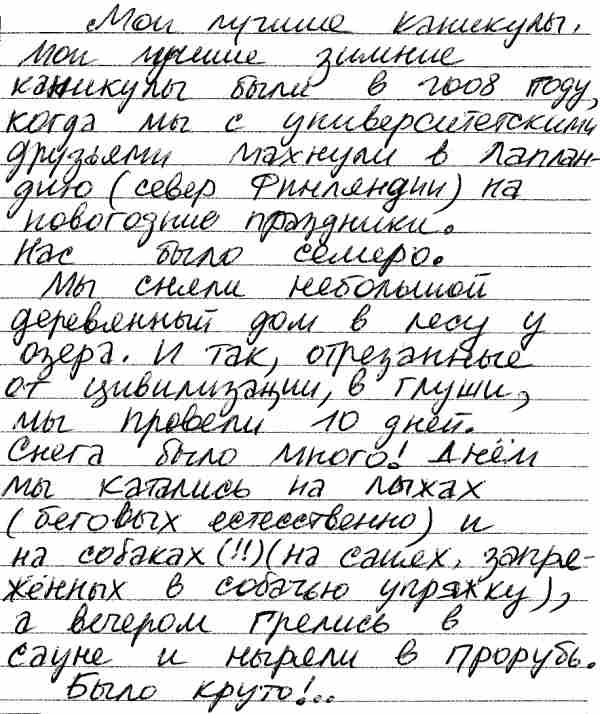 Мои лучшие каникулы.
Мои лучшие зимние
каникулы были в 2008 году,
когда мы с университетскими
друзьями махнули в Лаплан-
дию (север Финляндии) на
новогодние праздники.
Нас было семеро.
Мы сняли небольшой
деревянный дом в лесу у
озера. И так, отрезанные
от цивилизации, в глуши,
мы провели 10 дней.
Снега было много! Днём
мы катались на лыжах
(беговых естесственно) и
на собаках (!!) (на санях, запре-
жённых в собачью упряжку),
а вечером грелись в
сауне и ныряли в прорубь.
Было круто!..